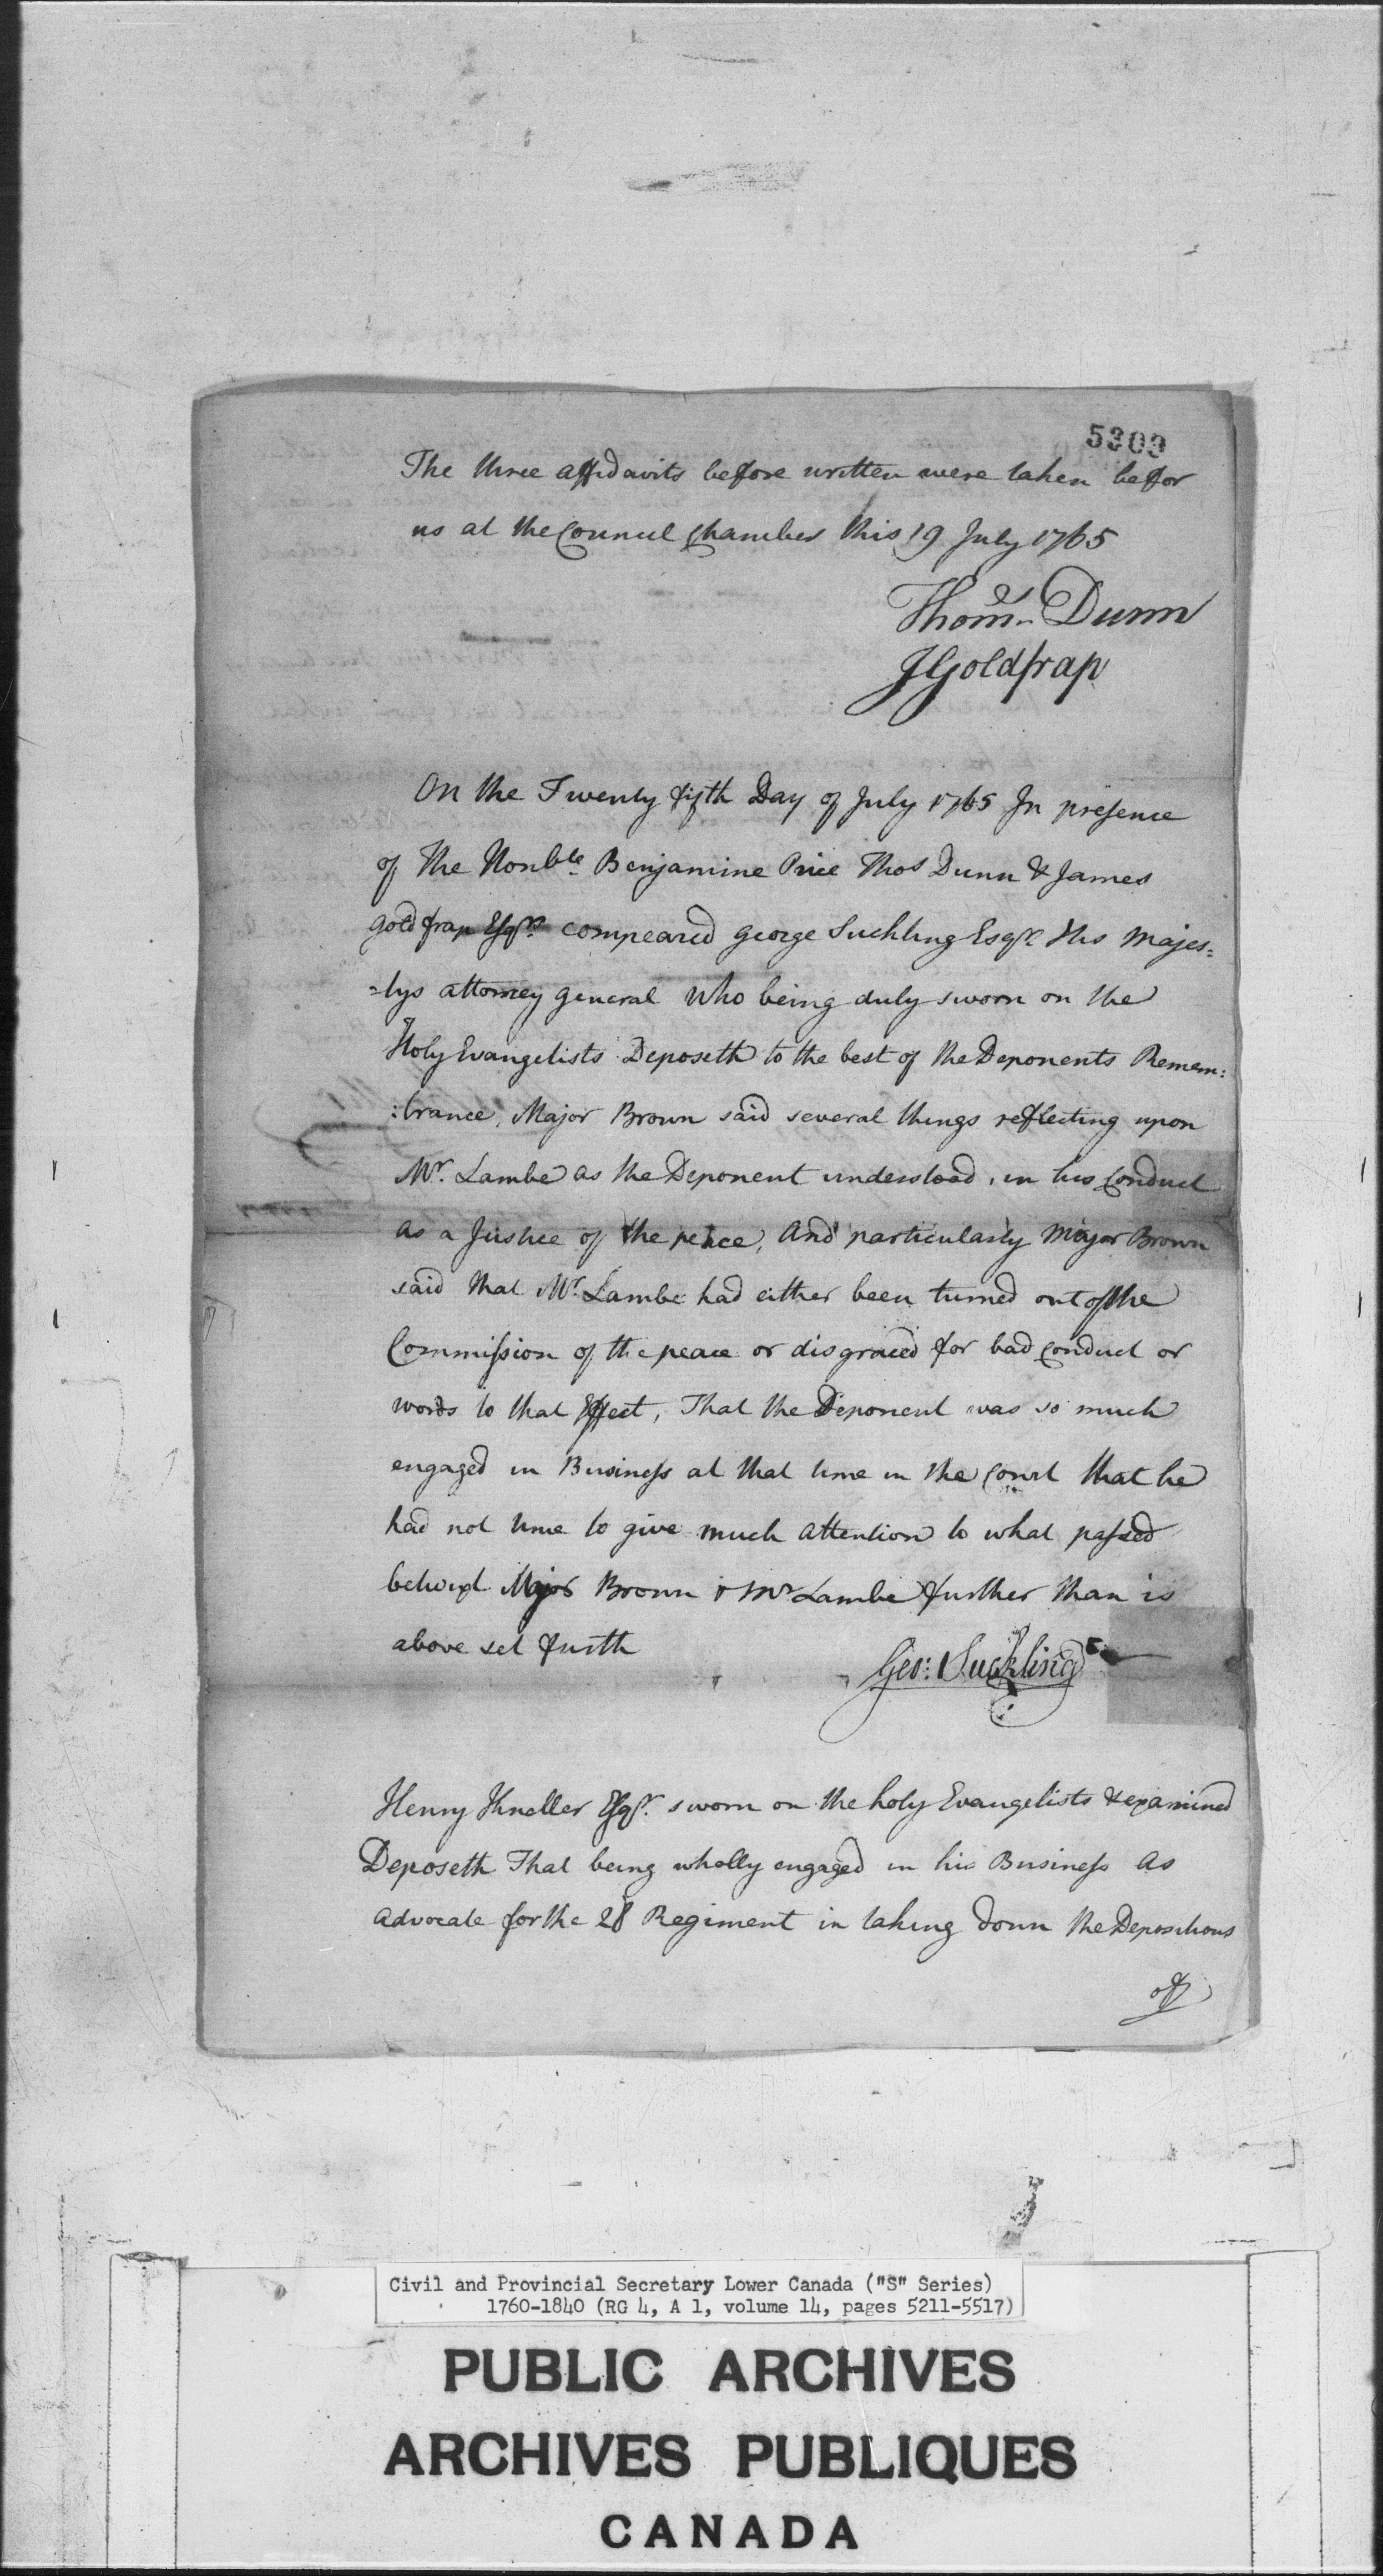 5303
The three affidavits before written were taken befor
us at the Council Chamber this 19 July 1765
Thoms. Dunn
JGoldfrap
On the Twenty fifth Day of July 1765 In presence
of The Honble. Benjamine Price Thos Dunn & James
Goldfrap Esqrs. compeared George Suckling Esqr. His Majes=
=tys attorney General Who being duly sworn on the
Holy Evangelists Deposeth to the best of the Deponents Remem:
:brance, Major Brown said several things reflecting upon
Mr. Lambe as the Deponent understood, in his Conduct
as a Justice of the peace, And particularly Major Brown
said that Mr. Lambe had either been turned out of the
Commission of the peace or disgraced for bad Conduct or
words to that Effect, That the Deponent was so much
engaged in Business at that time in the Court that he
had not time to give much attention to what passed
betwixt Major Brown & Mr Lambe further than is
above set furth
Geo: Suckling
Henry Kneller Esqr. sworn on the holy Evangelists & examined
Deposeth That being wholly engaged in his Business as
Advocate for the 28 Regiment in taking down the Depositions
of
Civil and Provincial Secretary Lower Canada ("S" Series)
1760-1840 (RG 4, A 1, volume 14, pages 5211-5517)
PUBLIC ARCHIVES
ARCHIVES PUBLIQUES
CANADA